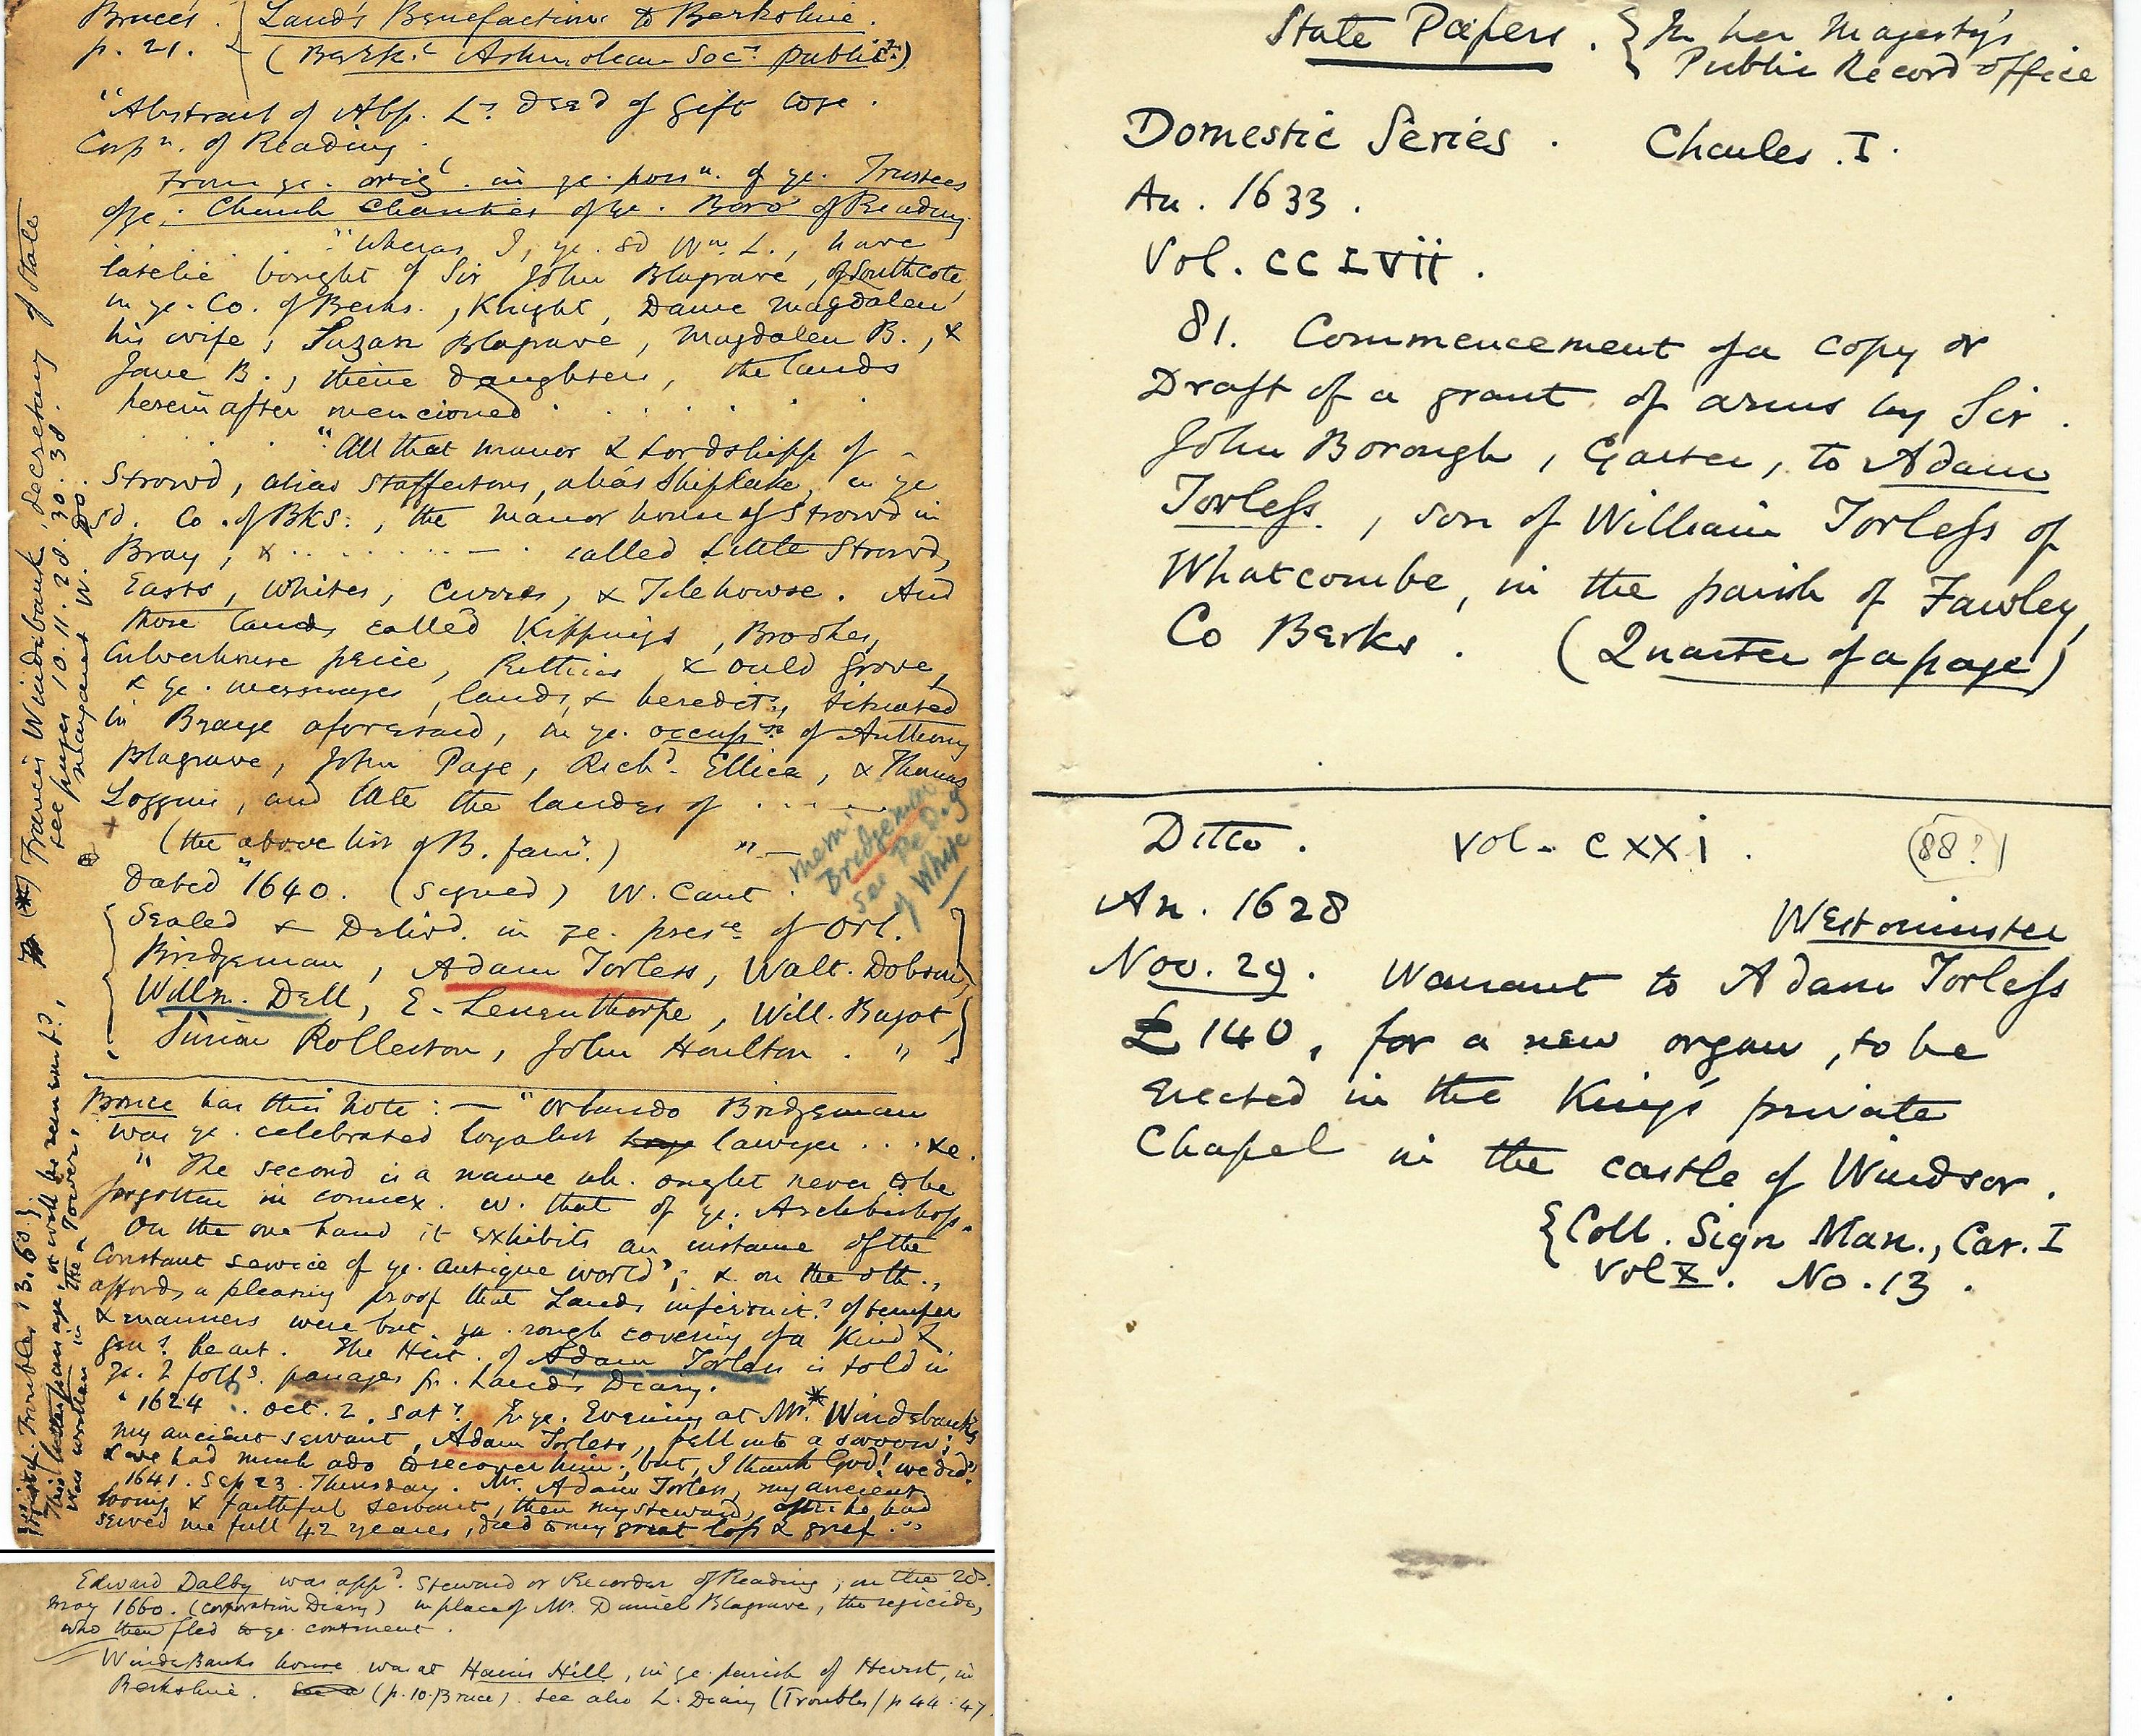 Bruce's . { Laud's Benefactions to Berkshire .
p. 21. { (Berks. Ashmolean Socy. publicn.)
"Abstract of Abp. Ls Deed of Gift to ye .
Corpn. of Reading .
From ye. origl. in ye. possn. of ye. Trustees
of ye. Church Charities of ye. Boro' of Reading.
. . . "Wheras I, ye. sd Wm. L., have
latelie bought of Sir John Blagrave, of Southcote,
in ye. Co. of Berks., Knight, Dame Magdalen
his wife, Suzan Blagrave, Magdalen B., &
Jane B., theire daughters, the lands
hereinafter mencioned . . . . . .
"All that manor & Lordshipp of -
Strowd, alias Staffertons, alias Shiplake, in ye
sd. Co. of Bks:, the manor house of Strowd in
Bray, & . . . . . . . — . called Little Strowd,
Easts, Whites, Currs, & Tilehowse. And
those lands called Kippings, Brookes,
Culverhouse peice, Rutties & Ould Grove,
& ye. messuages, lands, & heredits, situated
in Braye aforesaid, in ye. occupn. of Anthony
Blagrave, John Page, Richd. Ellice, & Thomas
Loggins, and late the landes of . . . —
(the above list of B. famy.) " —
Dated "1640. (signed) W. Cant .
Sealed & Delivd. in ye. presce. of Orl.
Bridgeman, Adam Torless, Walt. Dobson,
Willm. Dell, E. Lenenthorpe, Will. Bagot,
Simon Rolleston, John Houlton . "
mem:
Bridgeman
see Ped.g
of White
Bruce has this note : — "Orlando Bridgeman
was ye. celebrated loyalist lawyer . . . &c.
" The second is a name wh. ought never to be
forgotten in connex. w. that of ye. Archbishop.
On the one hand it exhibits an instance of the
constant service of ye. antique world'; & on the oth.,
affords a pleasing proof that Lauds infirmits. of temper
& manners were but ye. rough covering of a kind &
gens. heart. The Hist. of Adam Torless is told in
ye. 2 follg. passages fr. Laud's Diary.
"1624 . . Oct. 2. Saty. In ye. Evening at Mr.* Windebanks
my ancient servant, Adam Torless, fell into a swoon;
& we had much ado to recover him; but, I thank God! we did."
"1641. Sep 23. Thursday. Mr. Adam Torless, my ancient
loving, & faithful servant, then my steward, after he had
served me full 42 yeares, died to my great loss & grief."
(*) Francis Windebank, Secretary of State
see pages 10. 11. 28. 30. 38.
Do.
Hist. of Troubles 13. 63.;
This last passage, it will be rememb?,
was written in the Tower.
Edward Dalby was appd. Steward or Recorder of Reading, on the 28.
May 1660. (Corporation Diary) in place of Mr. Daniel Blagrave, the regicide,
who then fled to ye. continent.
WindeBanks house was at Hains Hill, in ye. parish of Hurst, in
Berkshire. (p. 10. Bruce). see also L. Diary (Troubles) p 44. 47.
State Papers . { In her Majesty's
Public Record office
Domestic Series . Charles . I .
An. 1633 .
Vol. CCLVii .
81. Commencement of a copy or
Draft of a grant of arms by Sir .
John Borough, Garter, to Adam
Torless., son of William Torless of
Whatcombe, in the parish of Fawley,
Co Berks . (Quarter of a page)
Ditto . Vol. CXXi . (88?)
An. 1628
Westminster
Nov. 29. Warrant to Adam Torless
£140, for a new organ, to be
erected in the King's private
Chapel in the castle of Windsor.
{Coll. Sign Man., Car. I
Vol X. No. 13 .